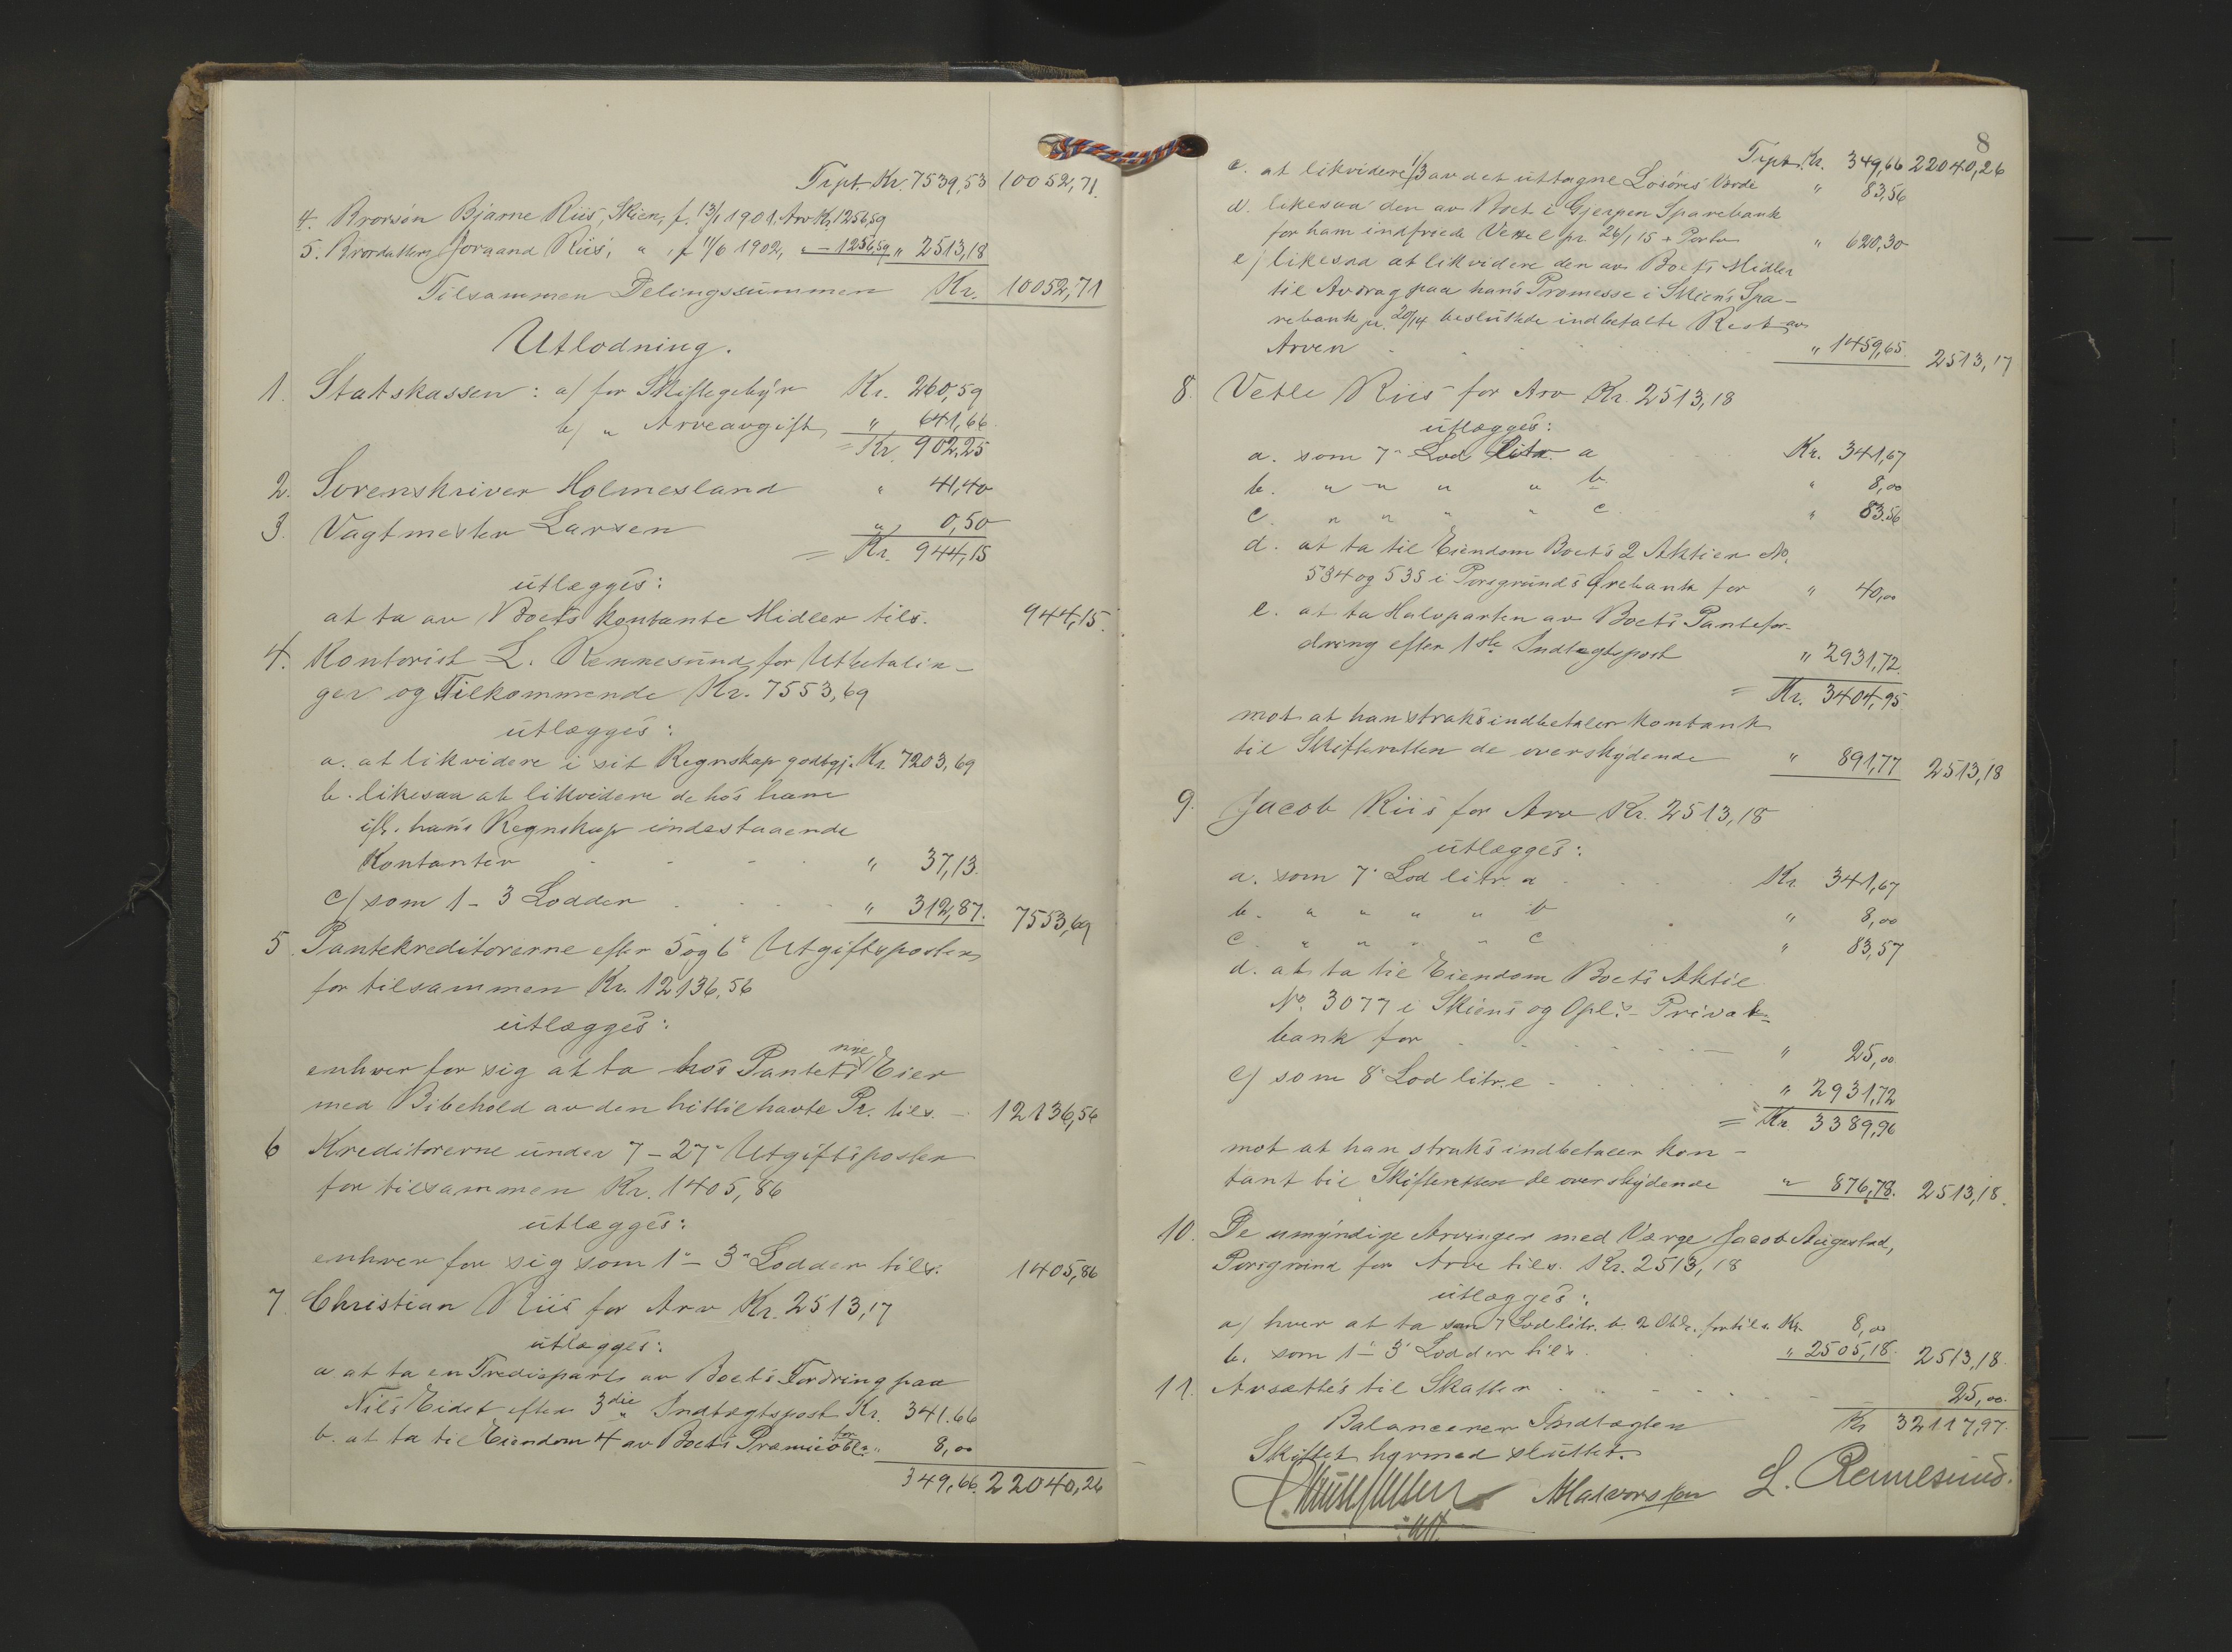 Trpt. Kr. 7539,53 10052,71
4. Brorsøn Bjarne Riis, Skien, f. 13/1 1901. Arv Kr. 1256,59
5. Brordatter Jorand Riis, " , f 11/6 1902, " – 1256,59 " 2513,18
Tilsammen Delingssummen Kr. 10052,71
Utlodning.
1. Statskassen: a/ for Skiftegebyr Kr. 260,59
b/ " Arveavgift " 641,66
= Kr. 902,25
2. Sorenskriver Holmesland " 41,40
3. Vagtmester Larsen " 0,50
= Kr. 944,15
utlægges:
at ta av Boets kontante Midler tils. 944,15.
4. Kontorist L. Rennesund for Utbetalin-
ger og Tilkommende Kr. 7553,69
utlægges:
a. at likvidere i sit Regnskap godtgj. Kr. 7203,69
b. likesaa at likvidere de hos ham
ifl. hans Regnskap indestaaende
Kontanter " 37,13.
c/ som 1 – 3 Lodder " 312,87. 7553,69
5. Pantekreditorerne efter 5 og 6" Utgiftsposter
for tilsammen Kr. 12136,56
utlægges:
enhver for sig at ta hos Pantets nye Eier
med Bibehold av den hittil havte Pr. tils. – 12136,56
6 Kreditorerne under 7 – 27" Utgiftsposter
for tilsammen Kr. 1405,86
utlægges:
enhver for sig som 1" – 3" Lodder tils. 1405,86
7. Christian Riis for Arv Kr. 2513,17
utlægges:
a at ta en Trediepart av Boets Fordring paa
Nils Eidet efter 3die Indtægtspost Kr. 341.66
b. at ta til Eiendom 4 av Boets Præmieobl. for " 8,00
349,66. 22040,26
8
Trpt. Kr. 349,66 22040,26
c. at likvidere 1/3 av det uttagne Losøres Værde " 83,56
d. likesaa den av Boet i Gjerpen Sparebank
for ham indfriede Vexel pr. 26/1 15 + Porto " 620,30
e/ likesaa at likvidere den av Boets Midler
til Avdrag paa hans Promesse i Skiens Spa-
rebank pr. 20/14 besluttede indbetalte Rest av
Arven " 1459,65. 2513,17
8. Vetle Riis for Arv Kr. 2513,18
utlægges:
a. som 7" Lod litr. a Kr. 341,67
b. " " " " b. " 8,00
c. " " " " c. " 83.56
d. at ta til Eiendom Boets 2 Aktier No.
534 og 535 i Porsgrunds for " 40,00
e. at ta Halvparten av Boets Pantefor-
dring efter 1ste Indtægtspost " 2931,72.
= Kr. 3404,95
mot at han straks indbetaler kontant
til Skifteretten de overskydende " 891,77 2513,18
9. Jacob Riis for Arv Kr. 2513,18
utlægges:
a. som 7" Lod litr. a Kr. 341,67
b. " " " " b " 8,00
c. " " " " c " 83,57
d. at ta til Eiendom Boets Aktie
No. 3077 i Skiens og Opl.s Privat-
bank for " 25,00
e/ som 8" Lod litr. e " 2931,72
= Kr. 3389,96
mot at han straks indbetaler kon-
tant til Skifteretten de overskydende " 876,78. 2513,18.
10. De umyndige Arvinger med Værge Jacob Augestad,
Porsgrund for Arv tils. Kr. 2513,18
utlægges:
a/ hver at ta som 7 Lod litr. b. 2 Obl. for tils. Kr. 8,00
b. som 1" – 3" Lodder tils. " 2505,18. 2513,18.
11. Avsættes til Skatter 25,00.
Balancerer Indtægten Kr 32117,97.
Skiftet hermed sluttet.
L. Rennesund.